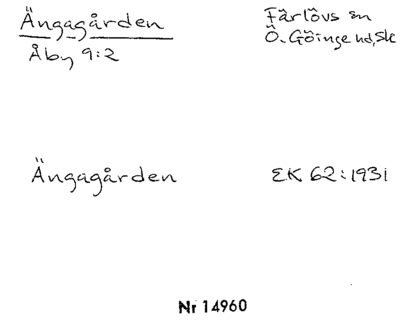 Ängagården
Färlövs sn
Åby 9:2
Ö. Göinge hd, Sk
Ängagården
EK 62:1931
Nr 14960